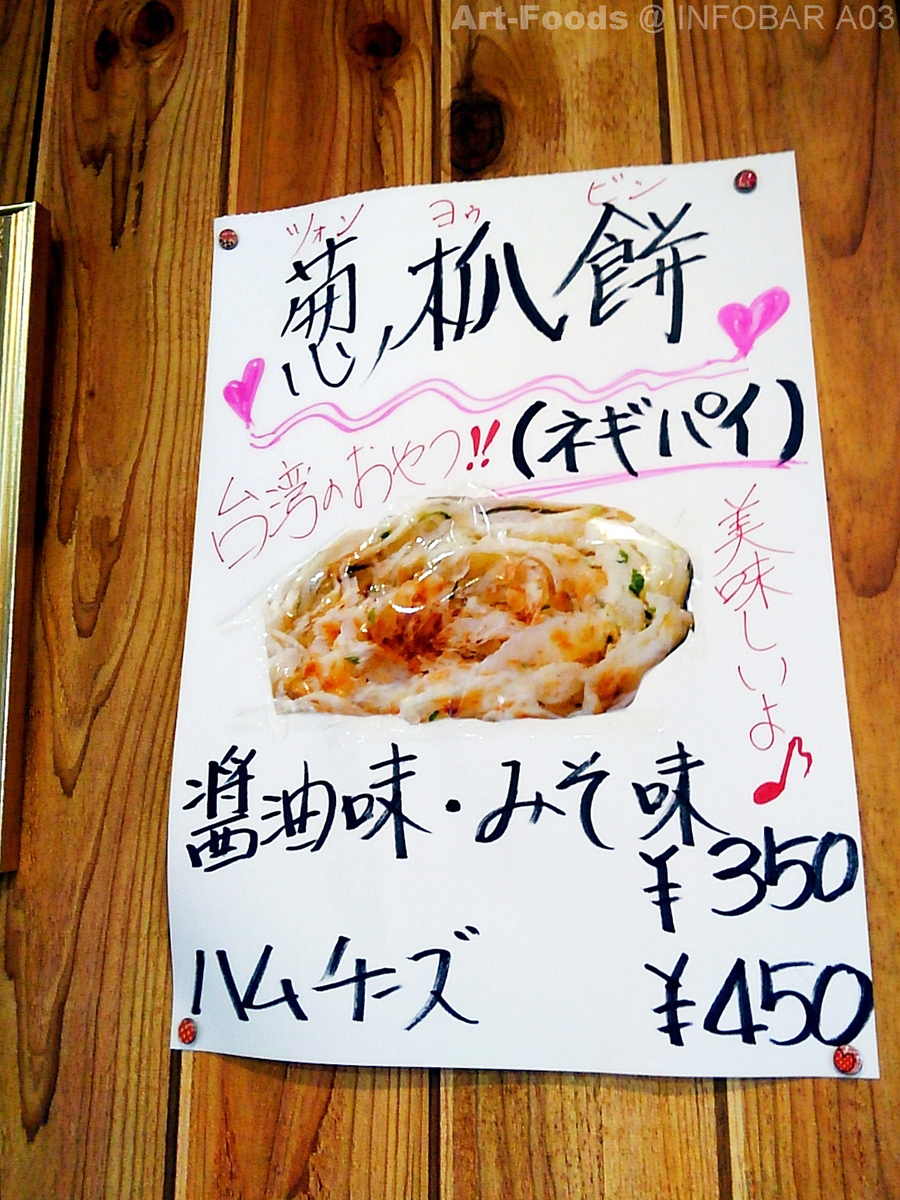 Art-Foods @ INFOBAR A03
ツォン ヨゥ ビン
葱抓餅
(ネギパイ)
台湾のおやつ!!
美味しいよ♪
醤油味・みそ味
¥350
ハムチーズ ¥450